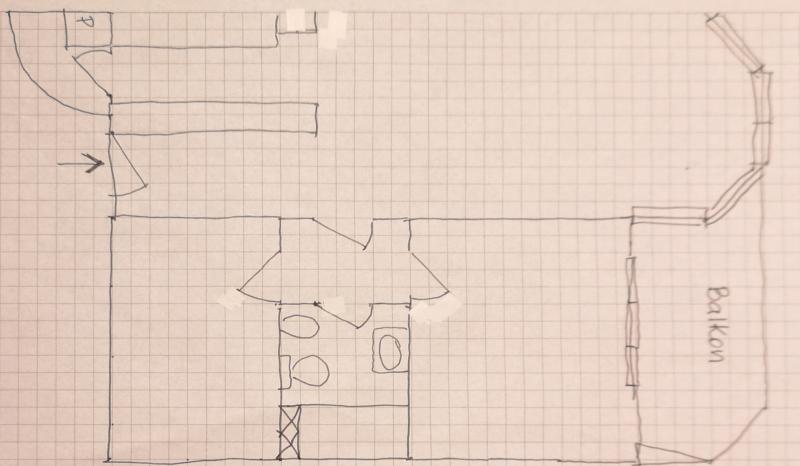 P
Balkon